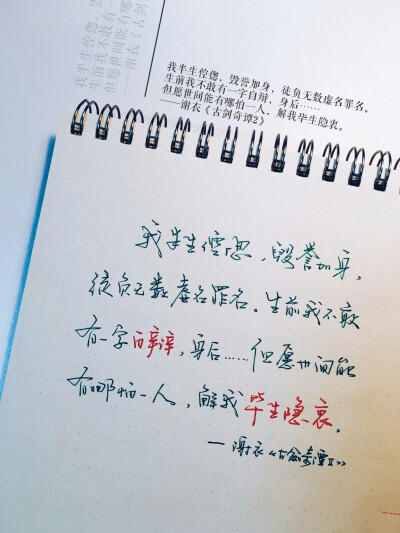 我半生倥偬，毁
生前我不敢有一
但愿世间能有哪
——谢衣《古剑奇
我半生倥偬，毁誉加身，徒负无数虚名罪名。
生前我不敢有一字自辩，身后……
但愿世间能有哪怕一人，解我毕生隐衷。
——谢衣《古剑奇谭2》
我半生倥偬，毁誉加身，
徒负无数虚名罪名。生前我不敢
有一字自辩，身后……但愿世间能
有哪怕一人，解我毕生隐衷。
—谢衣《古剑奇谭II》